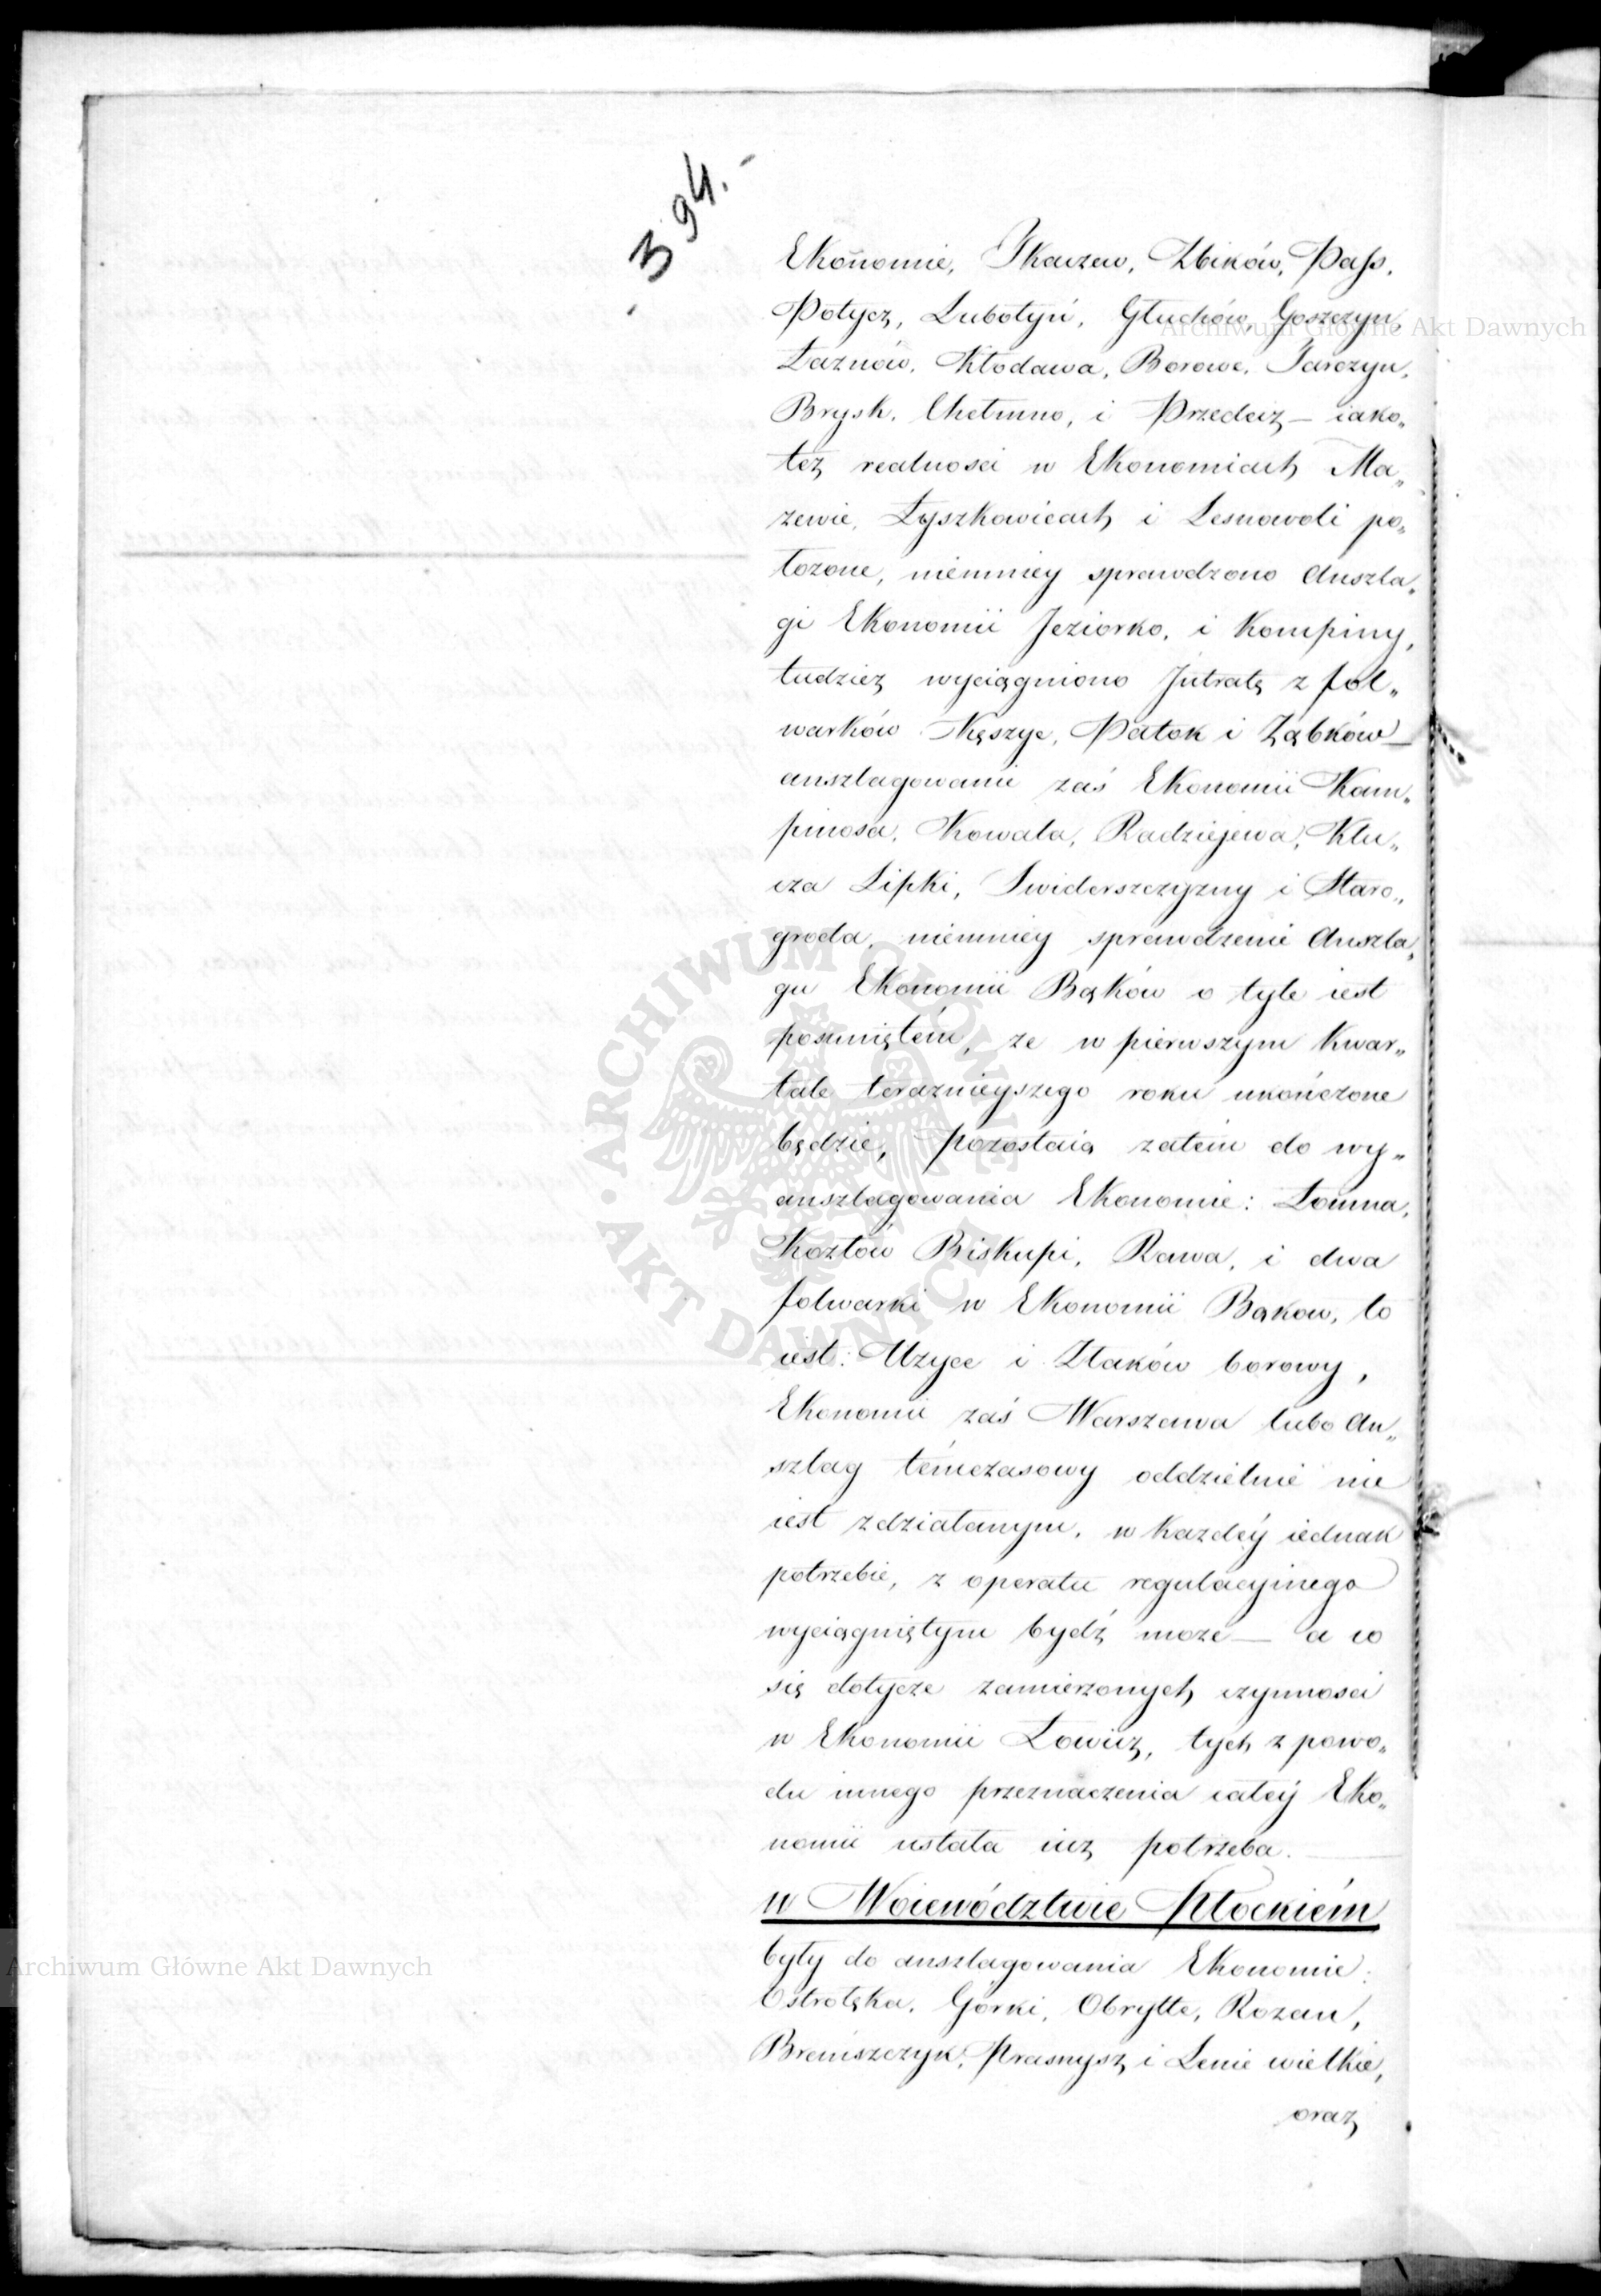 - 394. -
Ekonomie, Skaczew, Zbików, Pass,
Potycz, Lubotyń, Głuchów, Goszczyn,
Łaznów, Kłodawa, Borowe, Tarczyn,
Brysk, Chełmno, i Przedecz – iako„
też realnosci w Ekonomiach Ma„
zewie, Łyszkowicach i Lesnowoli po„
łozone, niemniey sprawdzono Anszla„
gi Ekonomii Jeziorko, i Kompiny,
tudzież wyciągniono Intratę z fol„
warków Kęszyc, Patok i Ząbków –
anszlagowanie zaś Ekonomii Kam„
pinosa, Kowala, Radziejewa, Klu„
cza Lipki, Swiderszczyzny i Staro„
groda, niemniey sprawdzenie Anszla„
gu Ekonomii Bąków o tyle iest
posuniętém, ze w pierwszym Kwar„
tale terazniéyszego roku ukończone
będzie, pozostaią zatém do wy„
anszlagowania Ekonomie: Łomna,
Kozłów Biskupi, Rawa, i dwa
folwarki w Ekonomii Bąkow, to
iest: Urzyce i Złaków borowy,
Ekonomii zaś Warszawa lubo An„
szlag témczasowy oddzielnie nie
iest zdziałanym, w Kazdéy iednak
potrzebie, z operatu regulacyjnego
wyciągniętym bydź moze – a co
się dotycze zamierzonych czynnosci
w Ekonomii Łowicz, tych z powo„
du innego przeznaczenia całéy Eko„
nomii ustała iuz potrzeba.
w Woiewództwie Płockiém
były do anszlagowania Ekonomie:
Ostrołęka, Górki, Obrytte, Rozan,
Breńszczyk, Prasnysz i Lenie wielkie,
oraz
Archiwum Główne Akt Dawnych
Archiwum Główne Akt Dawnych
ARCHIWUM GŁÓWNE · AKT DAWNYCH ·